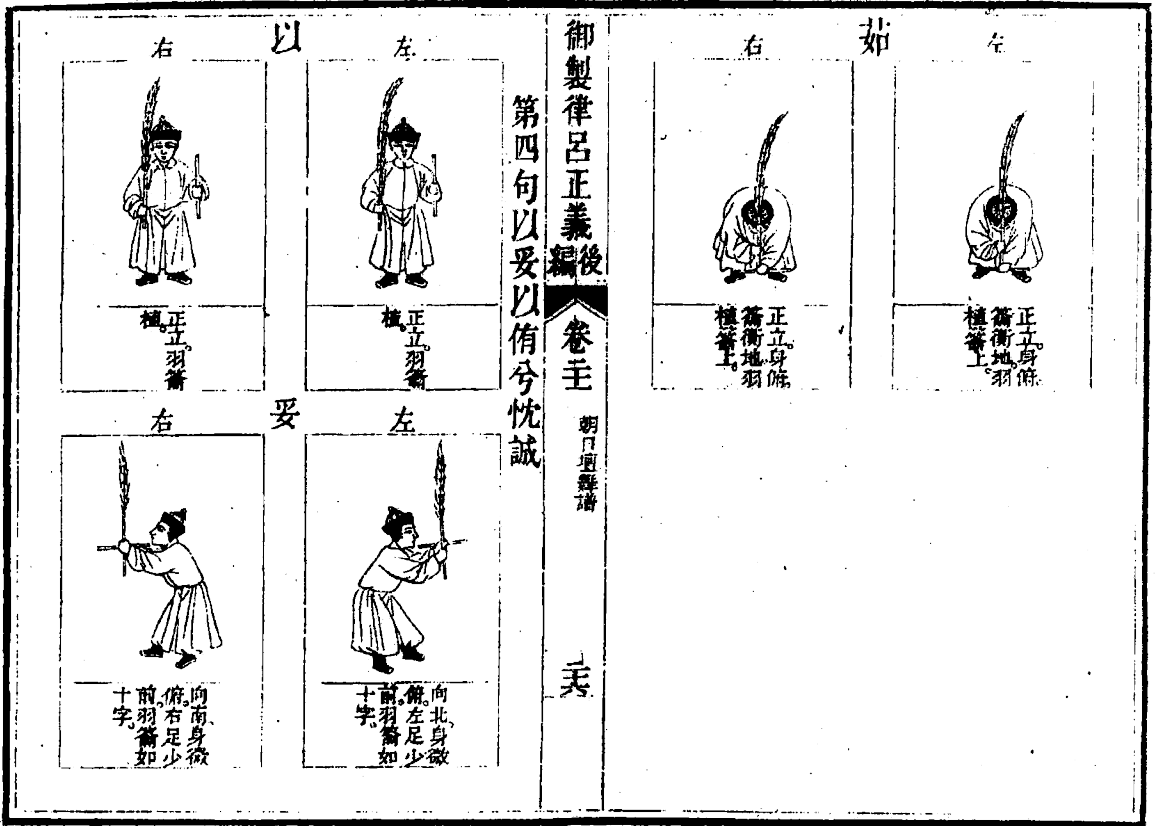 茹
左
正立。身俯。
籥衡地。羽
植籥上。
右
正立。身俯。
籥衡地。羽
植籥上。
御製律呂正義後編
卷二十
朝日壇舞譜
二十六
第四句以妥以侑兮忱誠
以
左
正立。羽籥
植。
右
正立。羽籥
植。
妥
左
向北、身微
俯。左足少
前。羽籥如
十字。
右
向南、身微
俯。右足少
前。羽籥如
十字。